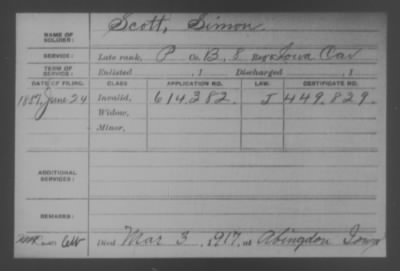 NAME OF SOLDIER: Scott, Simon
SERVICE: Late rank, P Co. B, 8 Reg't Iowa Cav
TERM OF SERVICE: Enlisted , 1 Discharged , 1
DATE OF FILING. CLASS APPLICATION NO. LAW. CERTIFICATE NO.
1887, June 24 Invalid, 614382. J 449.829.
Widow,
Minor,
ADDITIONAL SERVICES:
REMARKS:
Died Mar 3, 1917, at Abingdon Iowa